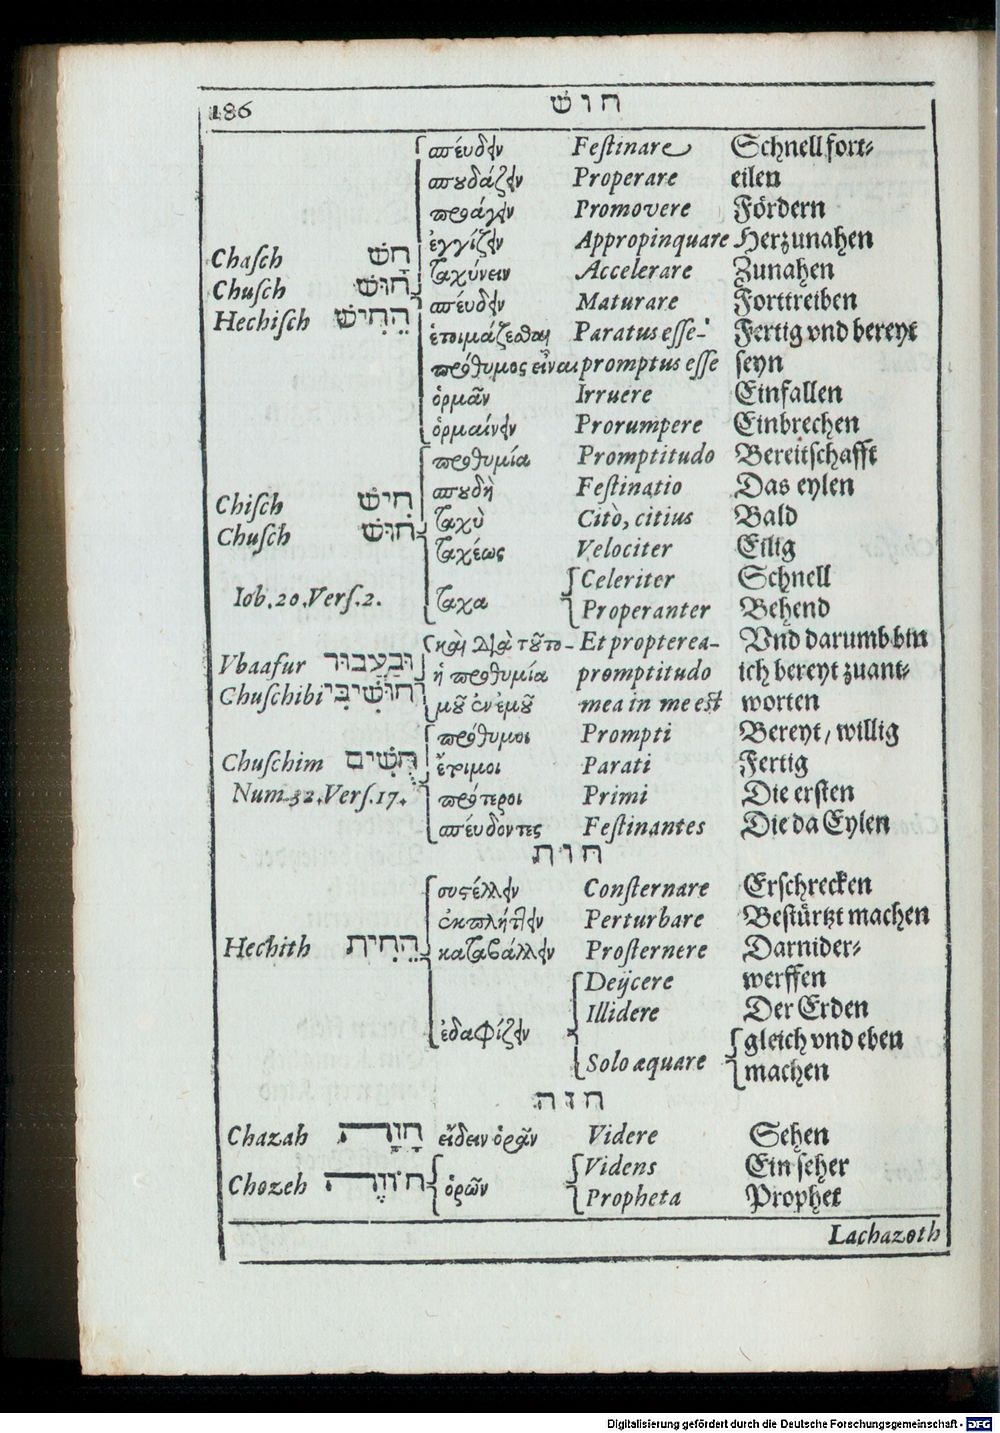 186 חוש
σπέυδειν Festinare Schnell fort-
σπουδάζειν Properare eilen
προάγειν Promovere Fördern
ἐγγίζειν Appropinquare Herzunahen
Chasch חָשׁ ταχύνειν Accelerare Zunahen
Chusch חוּשׁ σπέυδειν Maturare Forttreiben
Hechisch הֵחִישׁ ἑτοιμάζεσθαι Paratus esse- Fertig vnd bereyt
πρόθυμος εἶναι promptus esse seyn
ὁρμᾶν Irruere Einfallen
ὁρμαίνειν Prorumpere Einbrechen
προθυμία Promptitudo Bereitschafft
Chisch חִישׁ σπουδὴ Festinatio Das eylen
Chusch חוּשׁ ταχὺ Citò, citius Bald
ταχέως Velociter Eilig
Iob. 20. Vers. 2. ταχα Celeriter Schnell
Properanter Behend
καὶ διὰ τοῦτο- Et propterea- Vnd darumb bin
Vbaafur וּבַעֲבוּר ἡ προθυμία promptitudo ich bereyt zuant-
Chuschibi חוּשִׁיבִּי μοῦ ἐν ἐμοῦ mea in me est worten
πρόθυμοι Prompti Bereyt, willig
Chuschim חֻשִׁים ἔτιμοι Parati Fertig
Num. 32. Vers. 17. πρότεροι Primi Die ersten
σπέυδοντες Festinantes Die da Eylen
חות
συστέλλειν Consternare Erschrecken
ἐκπλήττειν Perturbare Bestürtzt machen
Hechith הֵחִית καταβάλλειν Prosternere Darnider-
Deijcere werffen
ἐδαφίζειν Illidere Der Erden
Solo æquare gleich vnd eben
machen
חזה
Chazah חָזָה εἴδειν ὁρᾶν Videre Sehen
Chozeh חוֹזֶה ὁρῶν Videns Ein seher
Propheta Prophet
Lachazoth
Digitalisierung gefördert durch die Deutsche Forschungsgemeinschaft - DFG